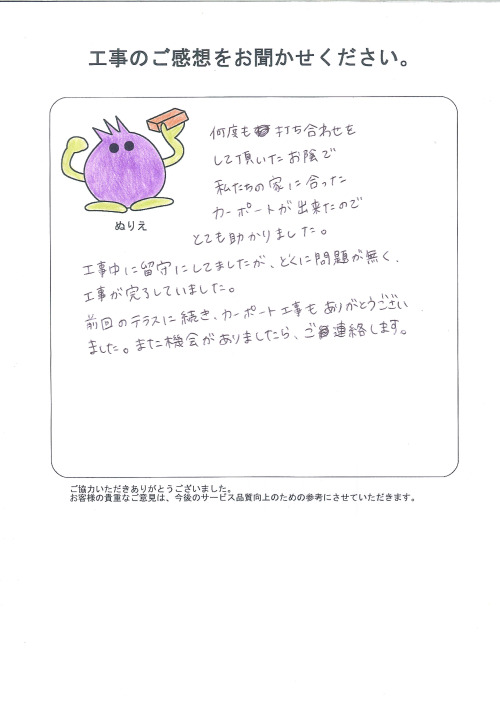 工事のご感想をお聞かせください。
何度も打ち合わせを
して頂いたお陰で
私たちの家に合った
カーポートが出来たので
とても助かりました。
ぬりえ
工事中に留守にしてましたが、とくに問題が無く、
工事が完了していました。
前回のテラスに続き、カーポート工事もありがとうござい
ました。また機会がありましたら、ご連絡します。
ご協力いただきありがとうございました。
お客様の貴重なご意見は、今後のサービス品質向上のための参考にさせていただきます。